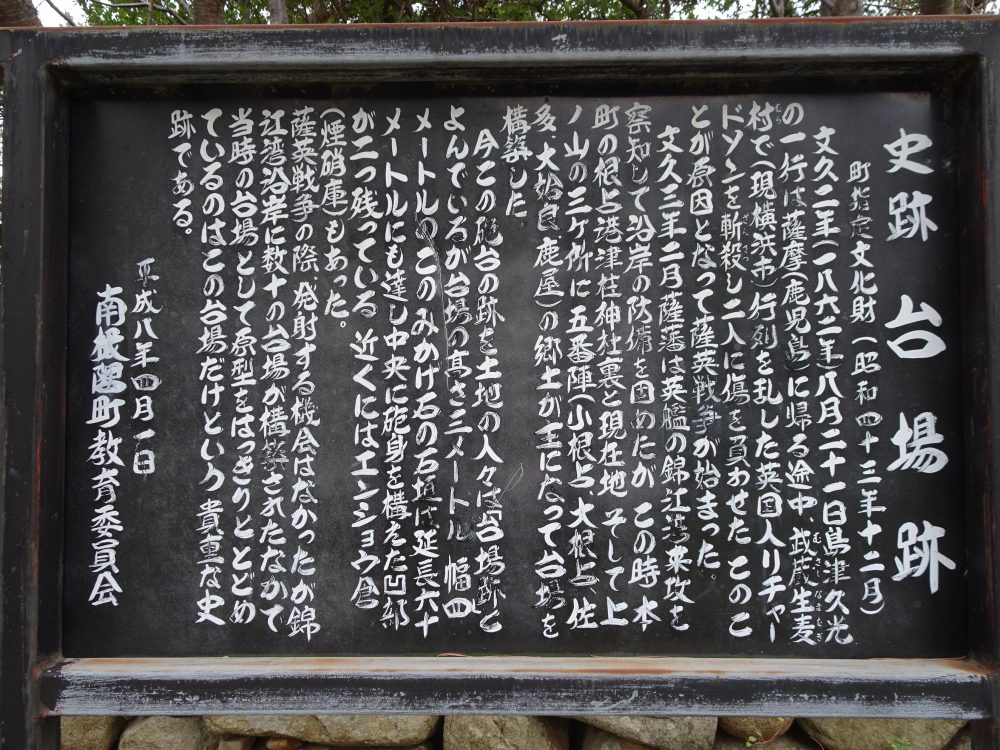 史跡 台場跡
町指定文化財(昭和四十三年十二月)
文久二年(一八六二年)八月二十一日島津久光
の一行は薩摩(鹿児島)に帰る途中 武蔵生麦
村で(現横浜市)行列を乱した英国人リチャー
ドソンを斬殺し二人に傷を負わせた このこ
とが原因となって薩英戦争が始まった。
文久三年二月薩藩は英艦の錦江湾来攻を
察知して沿岸の防備を固めたが この時本
町の根占港津柱神社裏と現在地 そして上
ノ山の三ヶ所に五番陣(小根占 大根占 佐
多 大姶良 鹿屋)の郷士が主になって台場を
構築した。
今この砲台の跡を土地の人々は台場跡と
よんでいるが台場の高さ三メートル 幅四
メートルの このみかげ石の石垣は延長六十
メートルにも達し中央に砲身を構えた凹部
が二つ残っている 近くにはエンショウ倉
(煙硝庫)もあった。
薩英戦争の際、発射する機会はなかったが錦
江湾沿岸に数十の台場が構築されたなかで
当時の台場として原型をはっきりととどめ
ているのはこの台場だけという 貴重な史
跡である。
平成八年四月一日
南根占町教育委員会